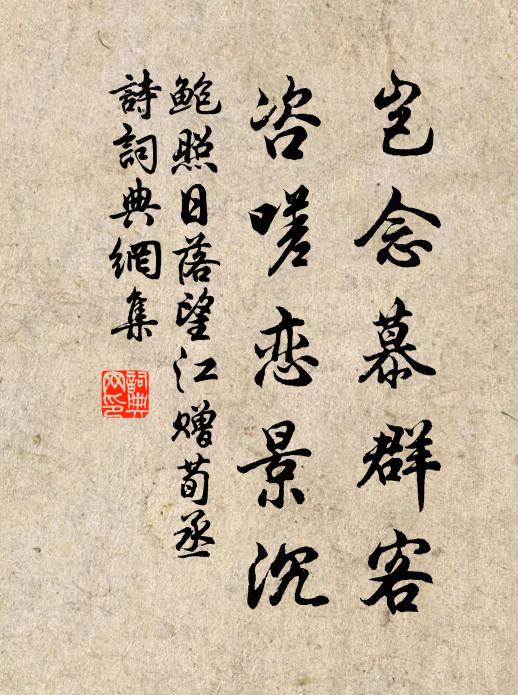 岂念慕群客
咨嗟恋景沉
鲍照日落望江赠荀丞
詩詞典網集
詞典
网印